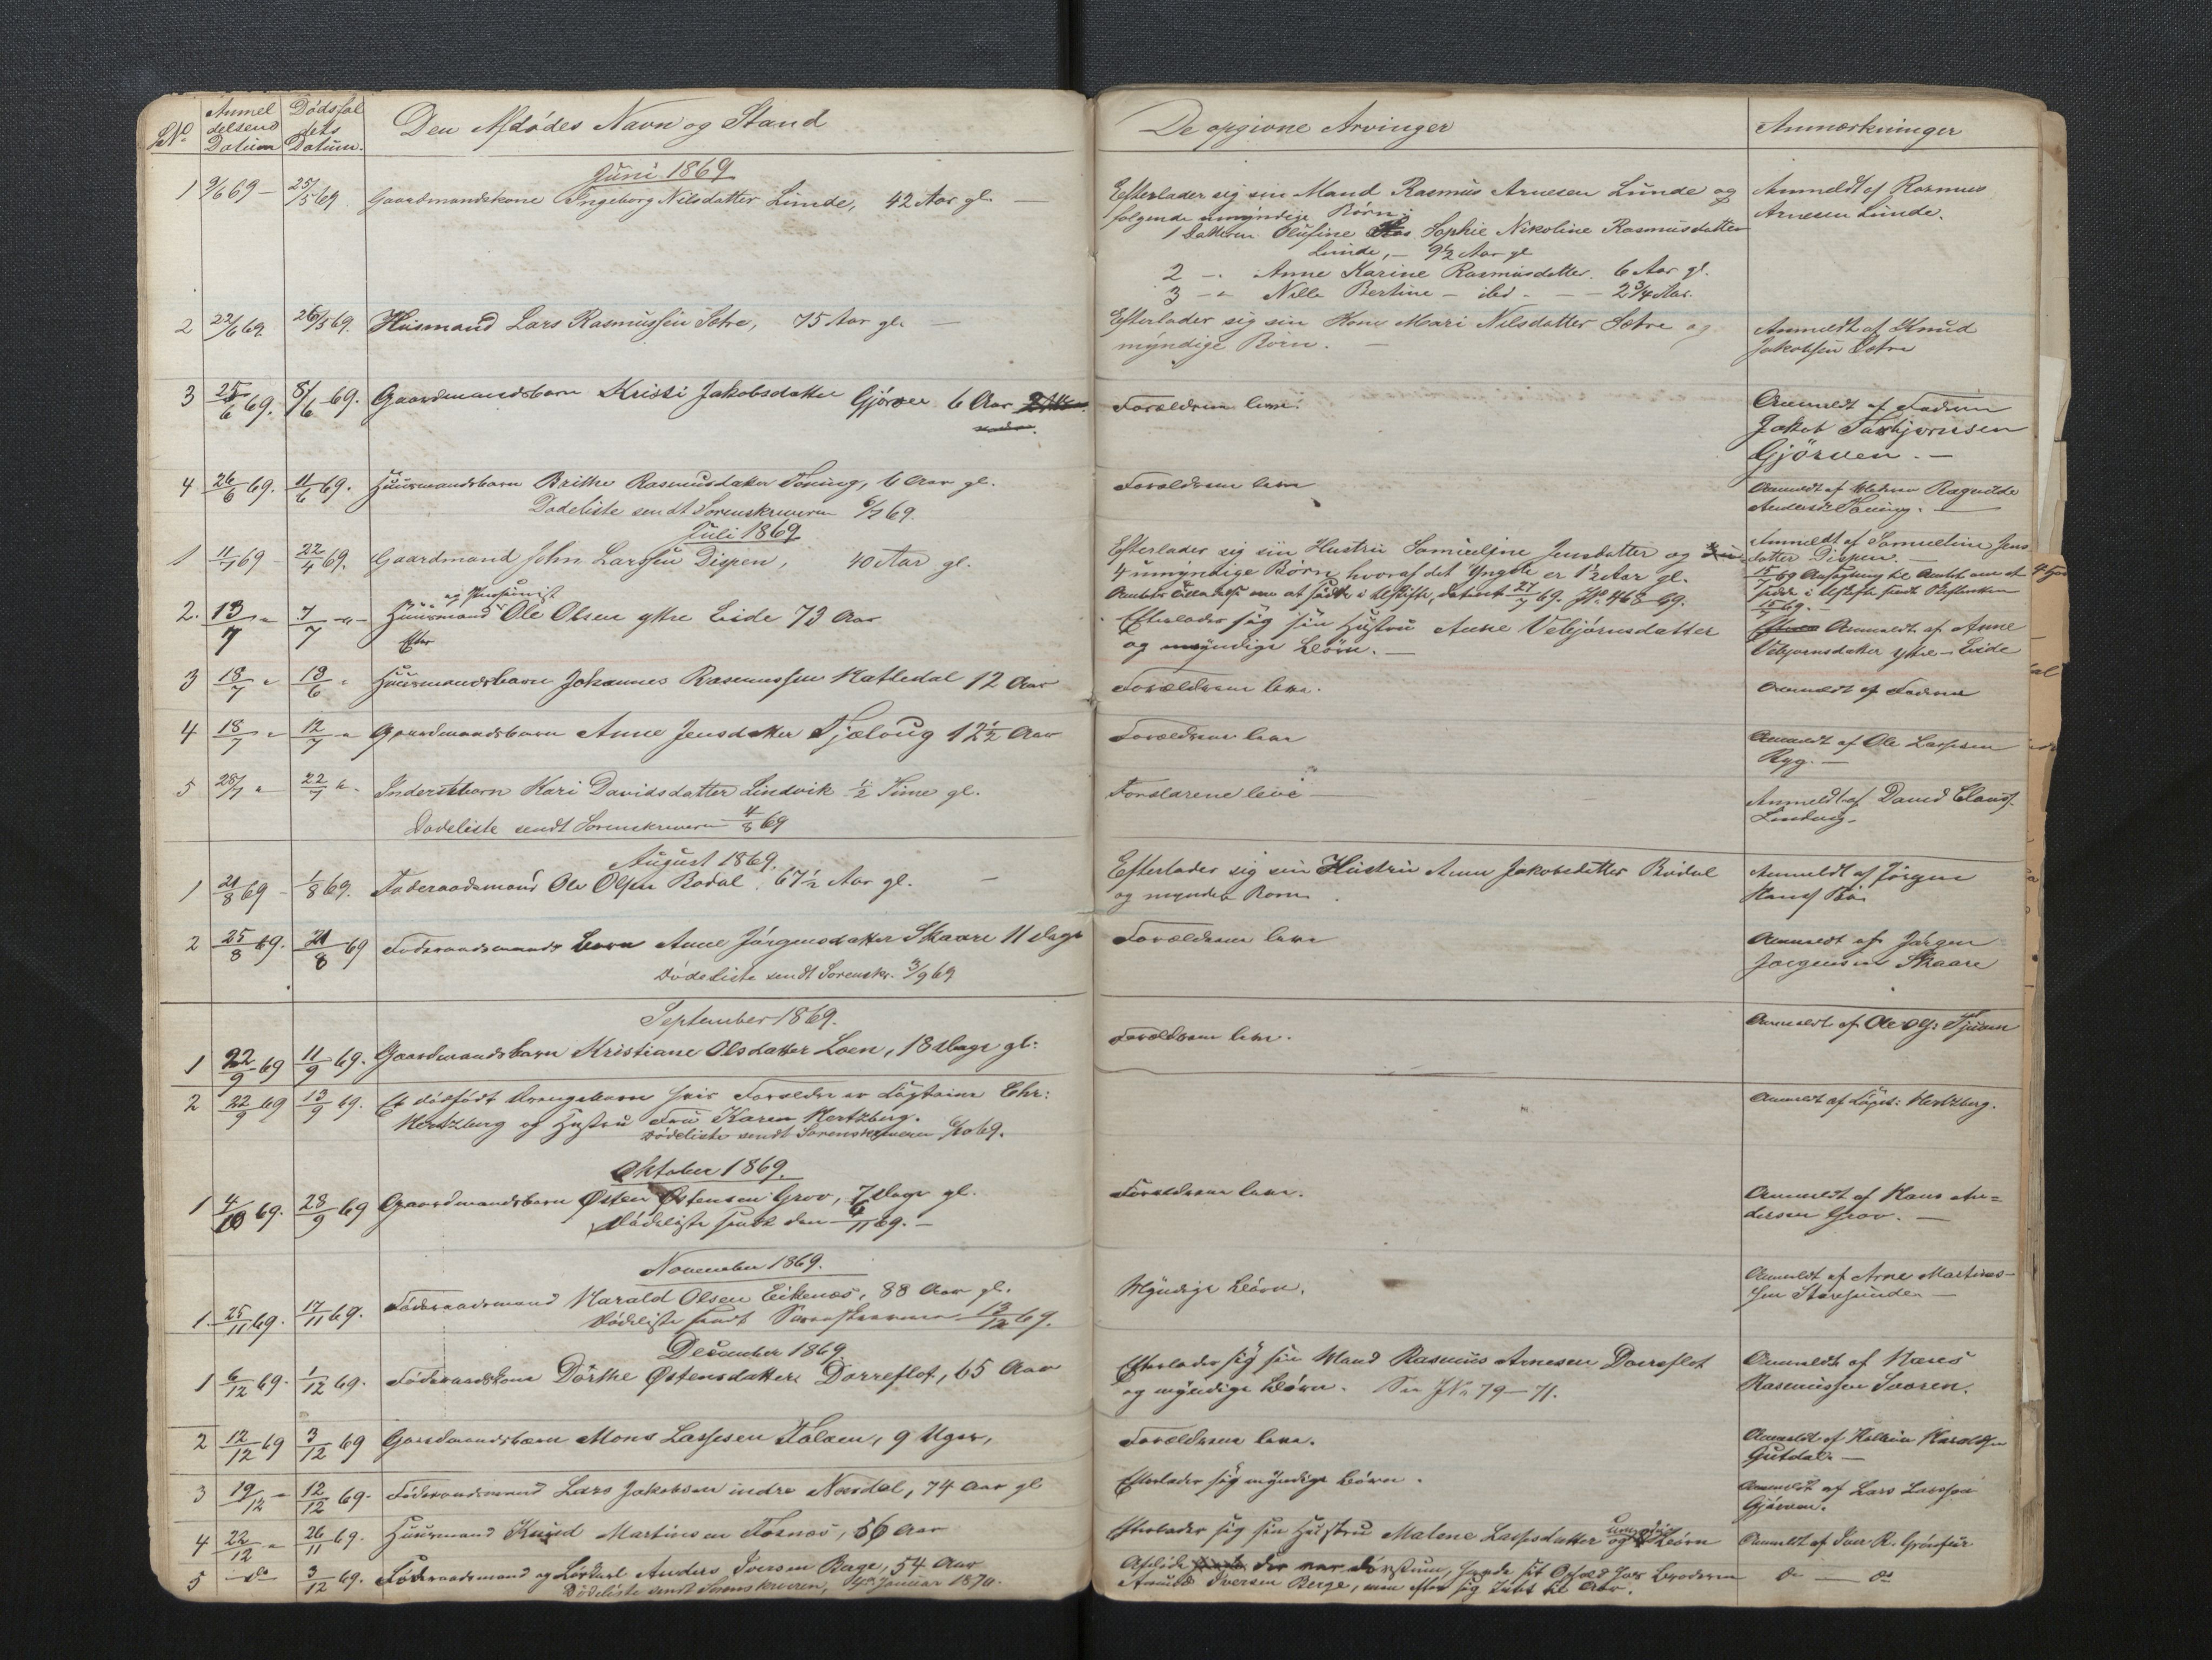 No Anmeldelsens Datum Dødsfaldets Datum. Den Afdødes Navn og Stand De opgivne Arvinger Anmærkninger
Juni 1869
1 9/6 69 – 25/5 69 Gaardmandskone Ingeborg Nilsdatter Lunde, 42 Aar gl. —
Efterlader sig sin Mand Rasmus Arnesen Lunde og
følgende umyndige Børn:
1 Datteren Olufine Sophie Nikoline Rasmusdatter
Lunde, – 9½ Aar gl
2 –„ Anne Karine Rasmusdatter 6 Aar gl.
3 –„ Nille Bertine – ibid – – 2¾ Aar.
Anmeldt af Rasmus
Arnesen Lunde.
2 22/6 69. 26/5 69. Huusmand Lars Rasmussen Sætre, 75 Aar gl. —
Efterlader sig sin Kone Mari Nilsdatter Sætre og
myndige Børn. —
Anmeldt af Knud
Jakobsen Sætre
3 25/6 69. 8/6 69. Gaardmandsbarn Kristi Jakobsdatter Gjørven 6 Aar
Forældrene leve.
Anmeldt af Faderen
Jakob Torbjørnsen
Gjörven. —
4 26/6 69. 11/6 69. Huusmandsbarn Brithe Rasmusdatter Toning, 6 Aar gl.
Dødeliste sendt Sorenskriveren 6/7 69.
Forældrene leve
Anmeldt af Moderen Ragnilde
Andersd: Toning. —
Juli 1869
1 11/7 69 – 22/4 69. Gaardmand John Larssen Dispen, 40 Aar gl.
Efterlader sig sin Hustru Samueline Jensdatter og
4 umyndige Børn, hvoraf det Yngste er 1½ Aar gl.
Amtets Tilladelse om at sidde i Uskifte, dateret 27/7 69. JNo 468–69.
Anmeldt af Samueline Jens
datter Dispen. —
15/7 69 Ansøgning til Amtet om at
sidde i Uskifte sendt
15/7 69.
2. 13/7 „ 7/7 –„– Huusmand og Pensionist Ole Olsen ytre Eide 73 Aar
Efterlader sig sin Hustru Anne Vebjørnsdatter
og myndige Børn. —
Anmeldt af Anne
Vebjørnsdatter ytre – Eide
3 18/7 „ 19/6 „ Huusmandsbarn Johannes Rasmussen Natledal 12 Aar
Forældrene leve.
Anmeldt af Faderen
4 18/7 „ 12/7 „ Gaardmandsbarn Anne Jensdatter Tjælaug 12½ Aar
Forældrene leve
Anmeldt af Ole Lassesen
Ryg. —
5 28/7 „ 22/7 „ Inderstbarn Kari Davidsdatter Lindvik ½ Time gl.
Dødeliste sendt Sorenskriveren 4/8 69
Forældrene leve —
Anmeldt af David Clauss.
Lindvig.
August 1869.
1 21/8 69 – 1/8 69. Føderaadsmand Ole Olsen Bødal, 67½ Aar gl. –
Efterlader sig sin Hustru Anne Jakobsdatter Bødal
og myndige Børn.
Anmeldt af Jørgen
Hans Bø.
2 25/8 69. 21/8 69 Føderaadsmands barn Anne Jørgensdatter Skaare 11 Dage
Dødeliste sendt Sorenskr. 3/9 69
Forældrene leve
Anmeldt af Jørgen
Jørgensen Skaare
September 1869.
1 22/9 69 11/9 69. Gaardmandsbarn Kristiane Olsdatter Loen, 18 Dage gl:
Forældrene leve.
Anmeldt af Ole Ols: Tjuen
2 22/9 69 13/9 69. Et dödfødt Drengebarn hvis Forældre er Løytnant Chr:
Hertzberg og Hustru Fru Karen Hertzberg.
Dödeliste sendt Sorenskriveren /10 69.
Anmeldt af Løjt: Hertzberg.
Oktober 1869.
1 4/10 69. 28/9 69 Gaardmandsbarn Østen Østensen Grov, 7 Dage gl.
Dødeliste sendt den 4/11 69. —
Forældrene leve.
Anmeldt af Hans An=
dersen Grov. —
November 1869.
1. 25/11 69. 17/11 69. Føderaadsmand Harald Olsen Eikenæs, 88 Aar gl.
Dødeliste sendt Sorenskriveren 13/12 69.
Myndige Børn.
Anmeldt af Arne Martinus-
sen Storesunde. —
December 1869.
1 6/12 69. 1/12 69. Føderaadskone Dörthe Østensdatter Dorreflot, 65 Aar
Efterlader sig sin Mand Rasmus Arnesen Dorreflot
og myndige Børn. Se JNo 79–71.
Anmeldt af
Rasmussen
2 12/12 69 3/12 69 Gaardmandsbarn Mons Lassesen Følven, 9 Uger,
Forældrene leve.
Anmeldt af Haraldsen
Gutdal. —
3 19/12 – 12/12 69. Føderaadsmand Lars Jakobsen indre Nordal, 74 Aar gl
Efterlader sig myndige Børn.
Anmeldt af Lars Larssen
Gjørven.
4 22/12 „ 26/11 69. Huusmand Knud Martinsen Tosnæs, 56 Aar
Efterlader sig sin Hustru Malene Lassesdatter og umyndige Børn
Anmeldt af Iver R. Grönfur
5 –do 3/12 69. Føderaadsmand og Anders Iversen Berge, 54 Aar
Dödeliste sendt Sorenskriveren, Januar 1870.
Iversen Berge,
do — do